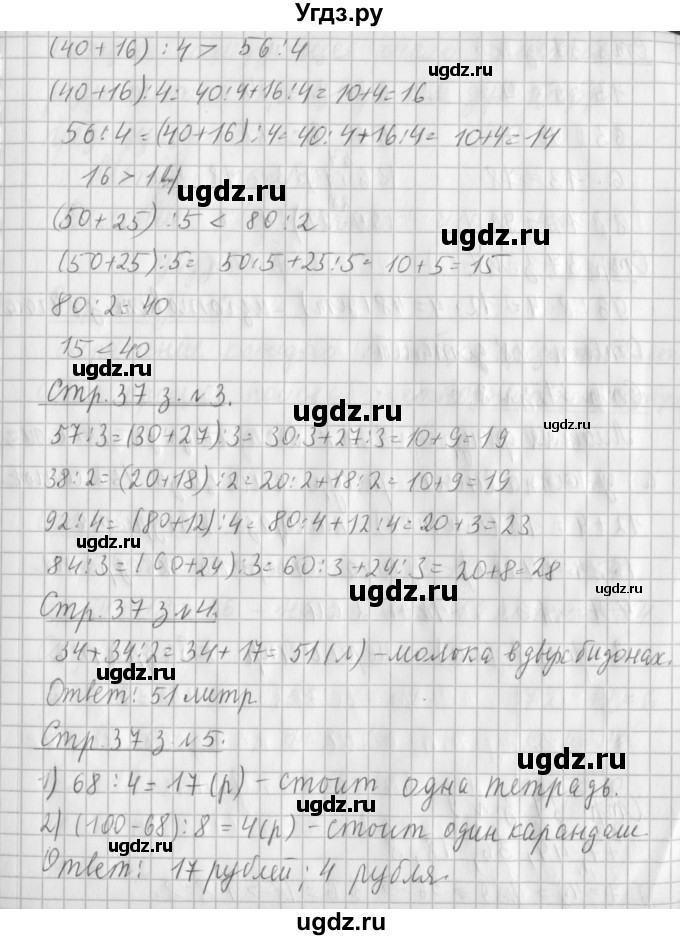 Угдз.ру
(40+16):4 > 56:4
ugdz.ru
(40+16):4= 40:4+16:4= 10+4=16
56:4=(40+16):4=40:4+16:4= 10+4=14
16>14
ugdz.ru
(50+25):5 < 80:2
ugdz.ru
(50+25):5= 50:5+25:5= 10+5=15
80:2=40
15<40
ugdz.ru
Стр. 37 з. №3.
ugdz.ru
ugdz.ru
57:3=(30+27):3= 30:3+27:3=10+9=19
38:2=(20+18):2=20:2+18:2=10+9=19
92:4= (80+12):4= 80:4+12:4=20+3=23
ugdz.ru
84:3=(60+24):3=60:3+24:3= 20+8=28
ugdz.ru
ugdz.ru
Стр. 37 з №4.
34+34:2=34+17=51(л)-молока в двух бидонах.
ugdz.ru
Ответ: 51 литр
Стр. 37 з. №5.
ugdz.ru
1) 68:4=17(р) - стоит одна тетрадь.
2) (100-68):8=4(р) - стоит один карандаш.
ugdz.ru
Ответ: 17 рублей; 4 рубля.
ugdz.ru